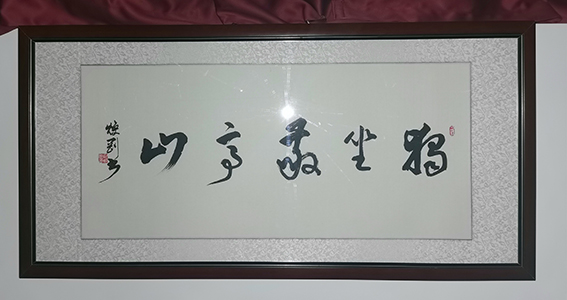 獨坐敬亭山